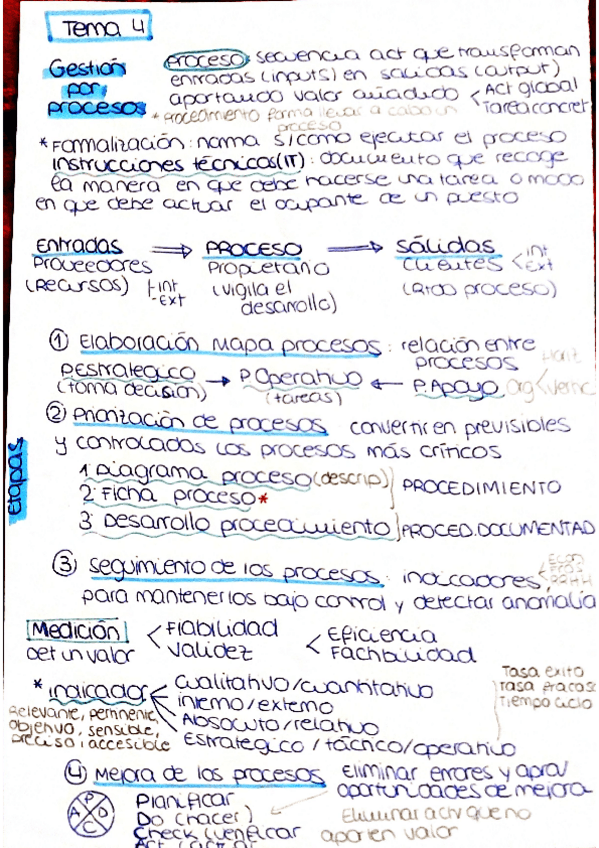 Tema 4
Gestión por procesos
proceso: secuencia act que transforman
entradas (inputs) en salidas (output)
aportando valor añadido < Act global
Tarea concret
* procedimiento forma llevar a cabo un
proceso
* Formalización: norma s/como ejecutar el proceso
Instrucciones técnicas (IT): documento que recoge
la manera en que debe hacerse una tarea o modo
en que debe actuar el ocupante de un puesto
Entradas ⇒ PROCESO ⇒ Sálidas
Proveedores Propietario Clientes < int
Ext
(Recursos) - int
- Ext
(vigila el
desarrollo)
(Rtdo proceso)
① Elaboración Mapa procesos: relación entre
procesos
P.Estrategico → P.Operativo ← P.Apoyo
(toma decisión) (tareas)
② Priorización de procesos convertir en previsibles
y controlados los procesos más críticos
Etapas
1 Diagrama proceso (descrip)
2 Ficha proceso *
PROCEDIMIENTO
3 Desarrollo procedimiento PROCED.DOCUMENTAD
③ Seguimiento de los procesos: indicadores
para mantenerlos bajo control y detectar anomalía
Medición < Fiabilidad
det un valor Validez
< Eficiencia
Factibilidad
* indicador < Cualitativo/cuantitativo
interno/externo
Absoluto/relativo
Estrategico/táctico/operativo
Relevante, pertinente,
objetivo, sensible,
preciso i accesible
Tasa exito
Tasa fracaso
Tiempo ciclo
④ Mejora de los procesos Eliminar errores y aprov
oportunidades de mejora
P D C A
Planificar
Do (hacer)
Check (verificar
Eliminar activ que no
aporten valor